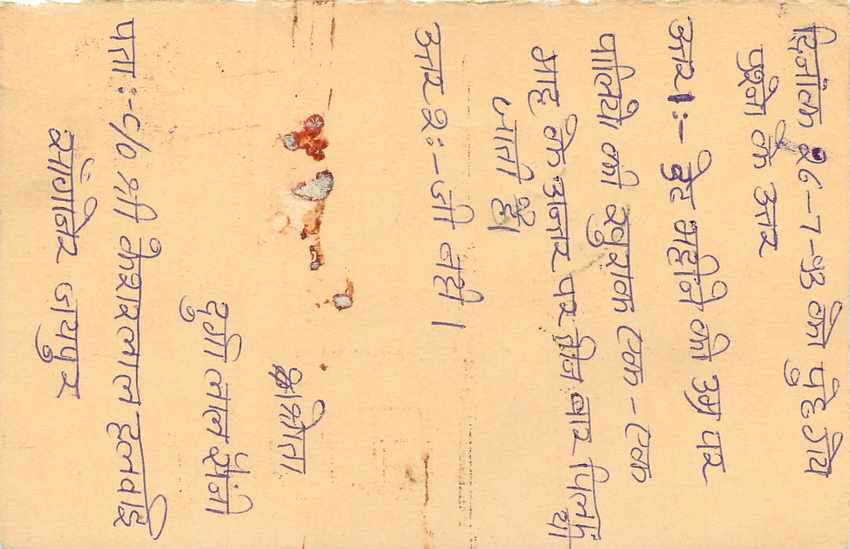 दिनांक २6-7-95 को पुछे गये
प्रश्नो के उत्तर
उत्तर 1:- डेढ महीने की उम्र पर
पोलियो की खुराक एक-एक
माह के अन्तर पर तीन बार पिलाई
जाती है।
उत्तर २:- जी नही।
श्रोता
दुर्गा लाल सैनी
पता:- C/o श्री केशरलाल हलवाई
सांगानेर जयपुर